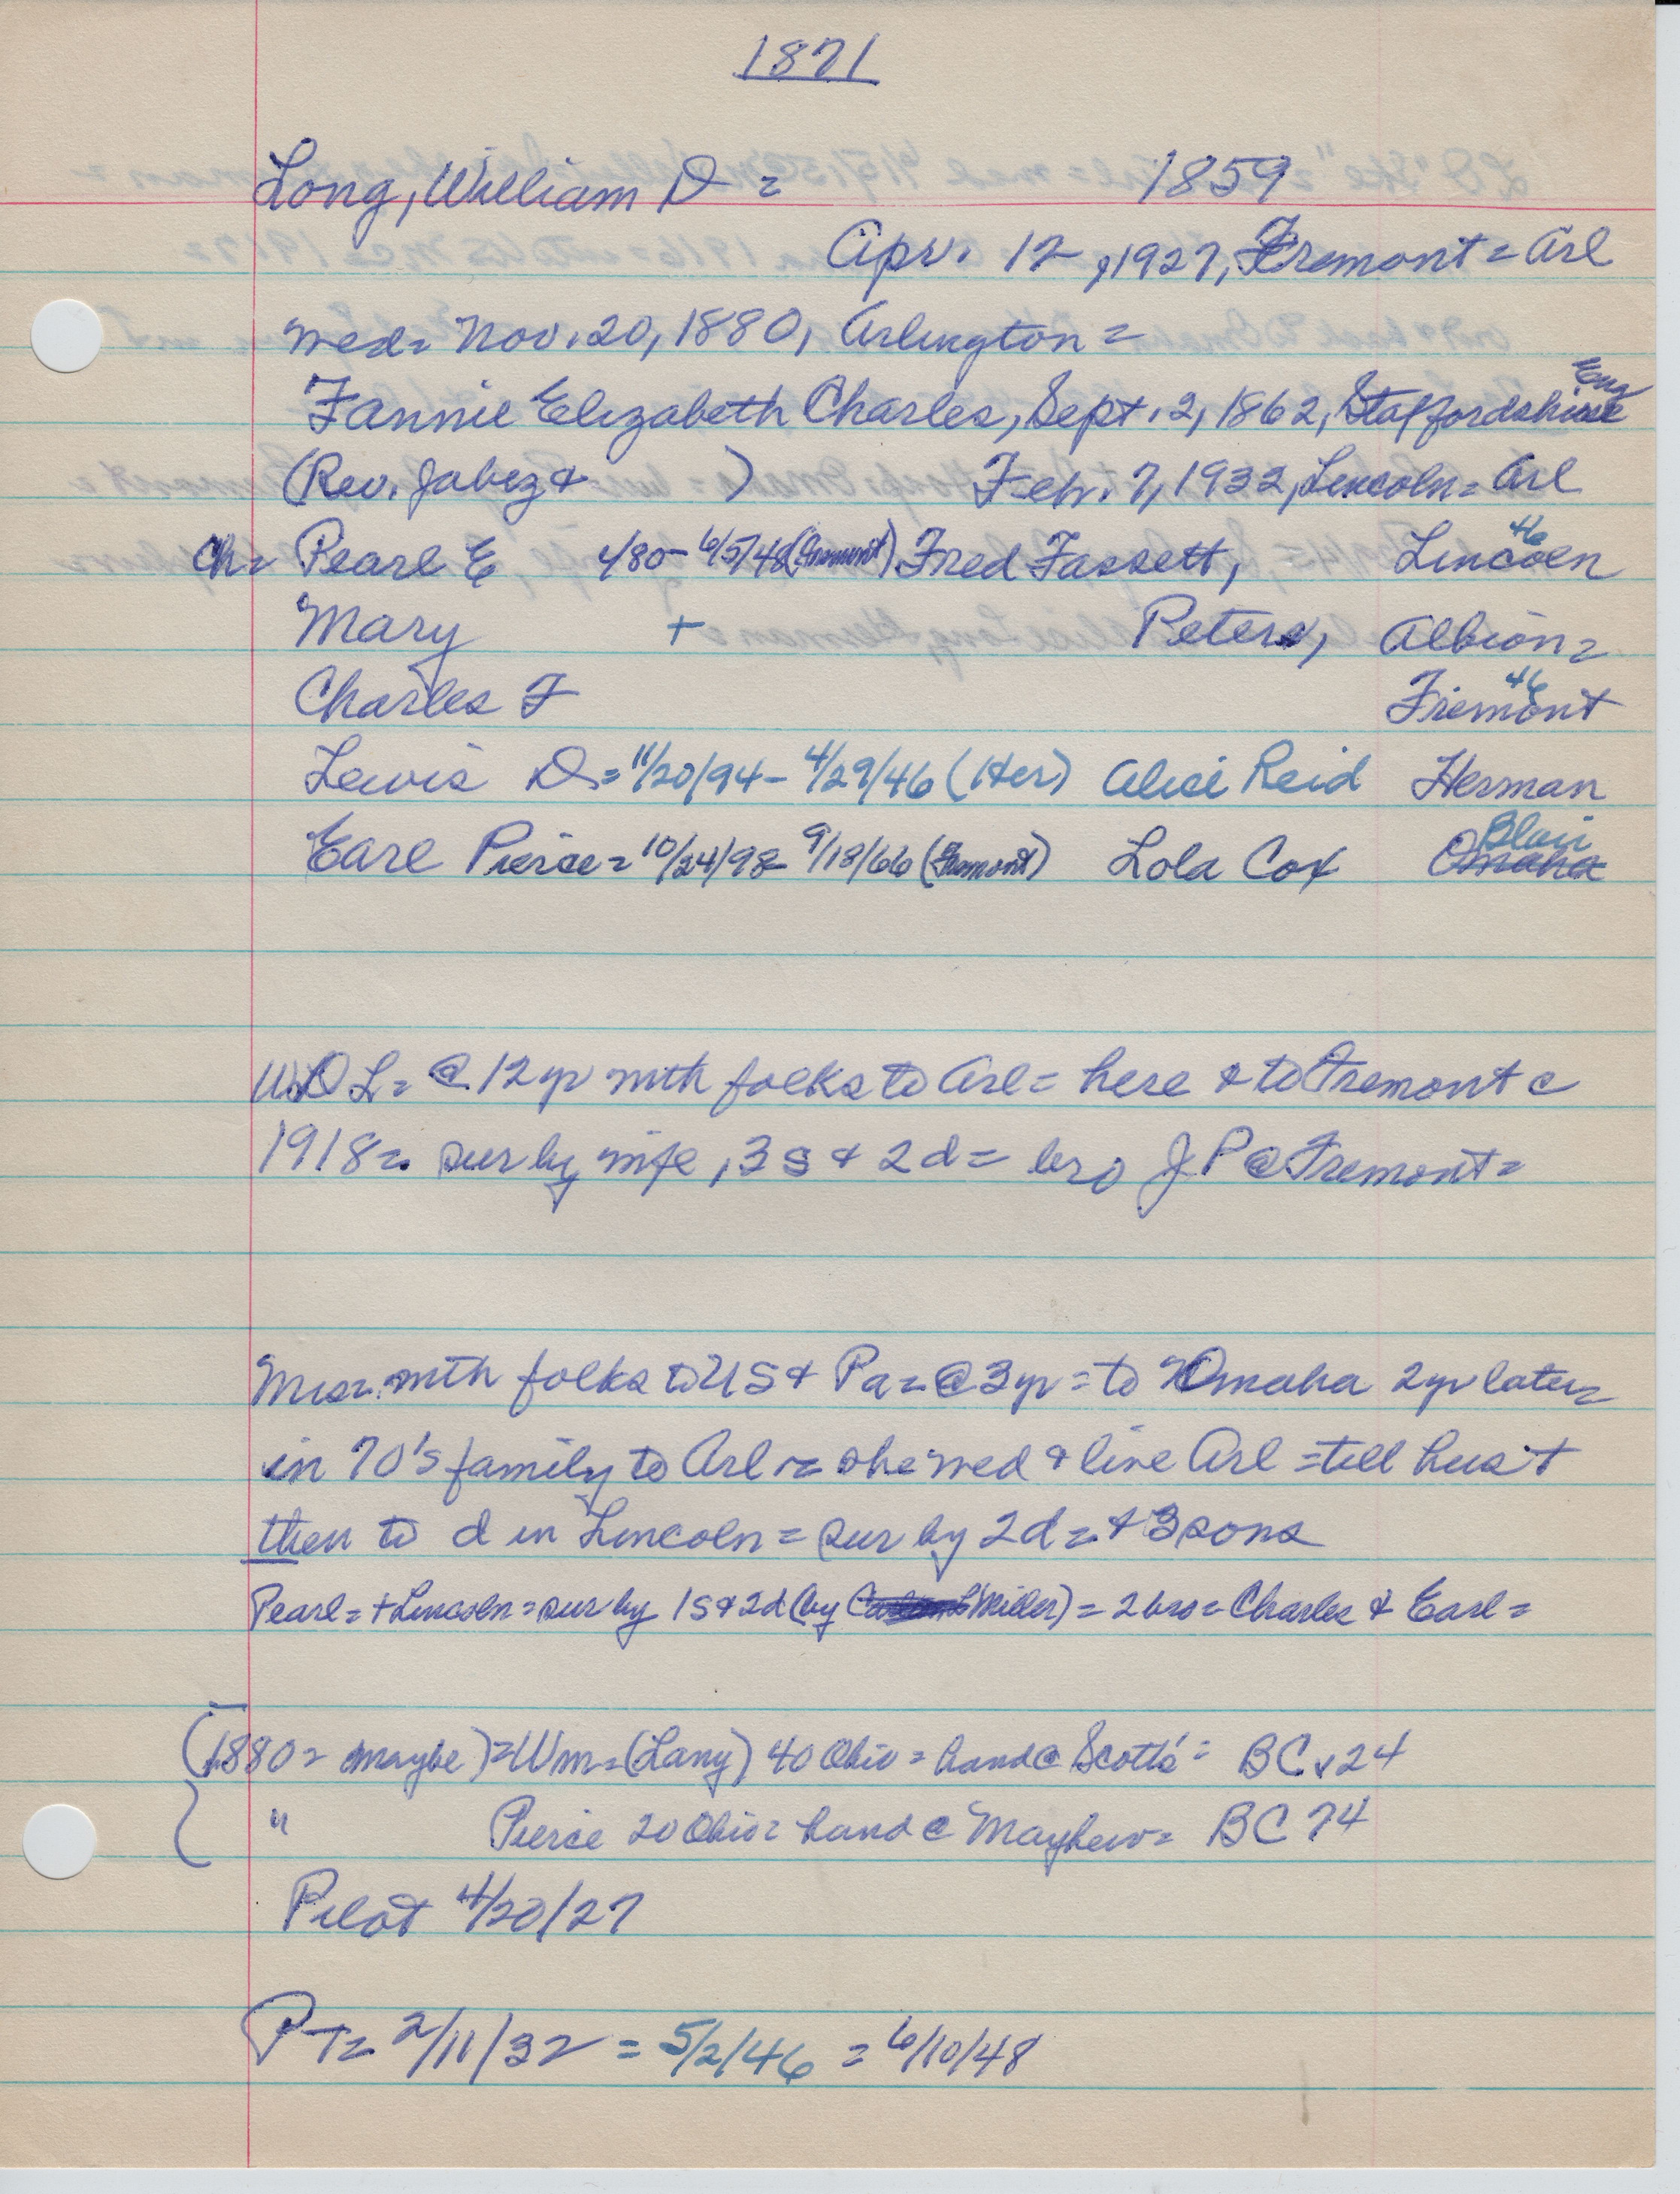 1871
Long, William D = 1859
Apr. 12, 1927, Fremont = Arl
wed = Nov. 20, 1880, Arlington =
Eng
Fannie Elizabeth Charles, Sept. 2, 1862, Staffordshire
(Rev. Jabez & ) Feb. 7, 1932, Lincoln = Arl
46
ch = Pearl E 4/80 - 6/5/48 (Fremont) Fred Fassett, Lincoln
Mary + Peters, Albion =
46
Charles F Fremont
Lewis D = 11/20/94 - 4/29/46 (Her) Alice Reid Herman
Blair
Earl Pierce = 10/24/98 - 9/18/66 (Fremont) Lola Cox Omaha
WDL = @ 12 yr with folks to Arl = here & to Fremont c
1918 = sur by wife, 3 s & 2 d = bro J P @ Fremont =
Mrs = with folks to US & Pa = @ 3 yr = to Omaha 2 yr later =
in 70's family to Arl = she wed & live Arl = till hus +
then to d in Lincoln = sur by 2 d = & 3 sons
Pearl = + Lincoln = sur by 1 s & 2 d (by Miller) = 2 bro = Charles & Earl =
(1880 = maybe) = Wm = (Lany) 40 Ohio = hand @ Scotts' = BC v 24
" Pierce 20 Ohio = hand @ Mayhew = BC 74
Pilot 4/20/27
PT = 2/11/32 = 5/2/46 = 6/10/48